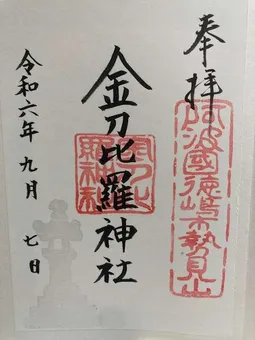 奉拝
阿波國徳嶋市勢見山
金刀比羅神社
金刀比
羅神社
令和六年九月七日